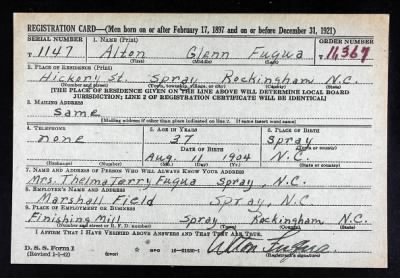 REGISTRATION CARD—(Men born on or after February 17, 1897 and on or before December 31, 1921)
SERIAL NUMBER 1. NAME (Print) ORDER NUMBER
T 1147 Alton Glenn Fuqua T 11,367
(First) (Middle) (Last)
2. PLACE OF RESIDENCE (Print)
Hickory St. Spray Rockingham N.C.
(Number and street) (Town, township, village, or city) (County) (State)
[THE PLACE OF RESIDENCE GIVEN ON THE LINE ABOVE WILL DETERMINE LOCAL BOARD
JURISDICTION; LINE 2 OF REGISTRATION CERTIFICATE WILL BE IDENTICAL]
3. MAILING ADDRESS
Same
[Mailing address if other than place indicated on line 2. If same insert word same]
4. TELEPHONE 5. AGE IN YEARS 6. PLACE OF BIRTH
none 37 Spray
DATE OF BIRTH (Town or county)
Aug. 16 1904 N.C.
(Exchange) (Number) (Mo.) (Day) (Yr.) (State or country)
7. NAME AND ADDRESS OF PERSON WHO WILL ALWAYS KNOW YOUR ADDRESS
Mrs. Thelma Terry Fuqua Spray, N.C.
8. EMPLOYER'S NAME AND ADDRESS
Marshall Field Spray, N.C.
9. PLACE OF EMPLOYMENT OR BUSINESS
Finishing Mill Spray Rockingham N.C.
(Number and street or R. F. D. number) (Town) (County) (State)
I AFFIRM THAT I HAVE VERIFIED ABOVE ANSWERS AND THAT THEY ARE TRUE.
D. S. S. Form 1
(Revised 1-1-42) (over) GPO Alton Fuqua
(Registrant's signature)